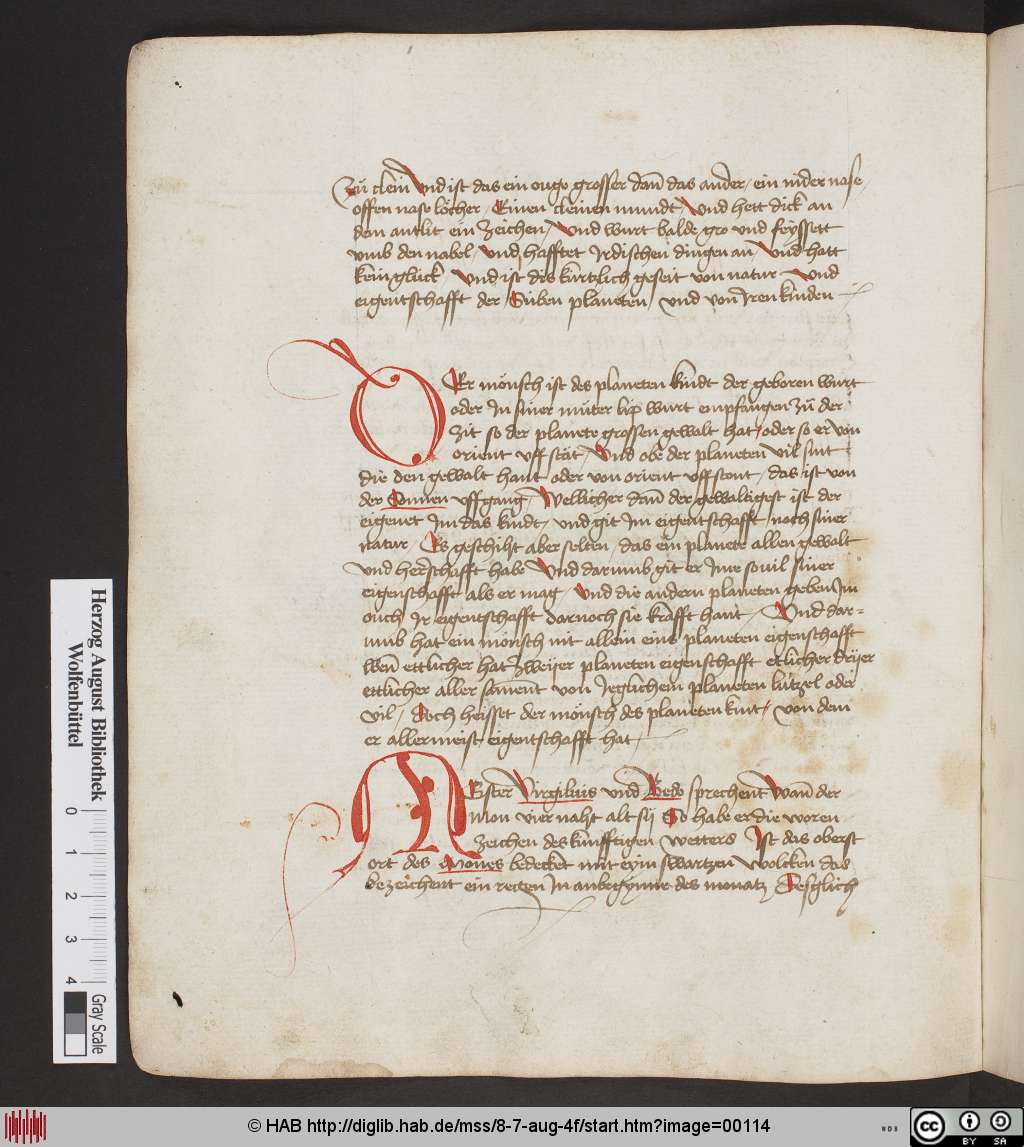 zü clein Vnd ist das ein ouge grosser dañ das ander / ein nider nase /
offen nase löcher / Einen cleinen mundt / Vnd hett dick an
dem antlit ein zeichen / Vnd wurt balde gro vnd feyssett
vmb den nabel / vnd hafftet Irdischen dingen an / Vnd hatt
kein glück / Vnd ist dis kürtzlich geseit von natur Vnd
eigentschafft der Süben planeten / vnd von Iren kinden
DEr mönsch ist des planeten kindt der geboren wurt
oder In siner müter lip wurt empfangen zü der
Zit so der planete grossen gewalt hat / oder so er von
orient vff stät / Vnd obe der planeten vil sint
die den gewalt hant oder von orient vff stont / das ist von
der Sonnen vffgang / Wellicher dañ der gewaltigest ist der
eigenet Im das kindt / vnd git Im eigentschafft noch siner
natur / Es geschiht aber selten / das ein planete allen gewalt
vnd herschafft habe Vnd darumb git er Ime souil siner
eigenschafft als er mag / Vnd die andern planeten geben Im
ouch Ir eigentschafft darnoch sie krafft hant / Vnd dar=
vmb hat ein mönsch nit allein eins planeten eigenschafft
wen̄ ettlicher hat zweijer planeten eigenschafft ettlicher drijer
ettlicher aller sament von Jeglichem planeten lützel oder
vil / Doch heisset der mönsch des planeten kint / von dem
er allermeist eigentschafft hat /
MEister Virgilius vnd Bede sprechent Wañ der
mon vier naht alt sij So habe er die woren
zeichen des künfftigen wetters Ist das oberst
ort des Mones bedecket mit eym swartzen wolcken das
bezeichent ein regen In anbegynne des monatz Desglich
Herzog August Bibliothek
Wolfenbüttel
0 1 2 3 4
Gray Scale
© HAB http://diglib.hab.de/mss/8-7-aug-4f/start.htm?image=00114
WDB
CC BY SA